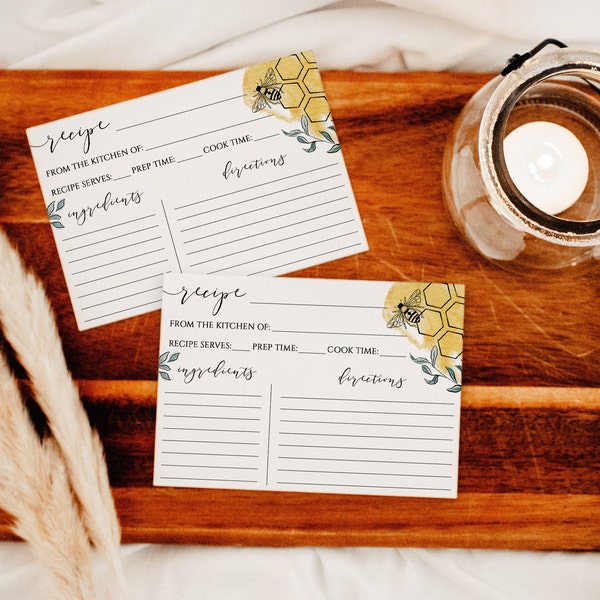 recipe
FROM THE KITCHEN OF:
RECIPE SERVES: PREP TIME: COOK TIME:
ingredients directions
recipe
FROM THE KITCHEN OF:
RECIPE SERVES: PREP TIME: COOK TIME:
ingredients directions